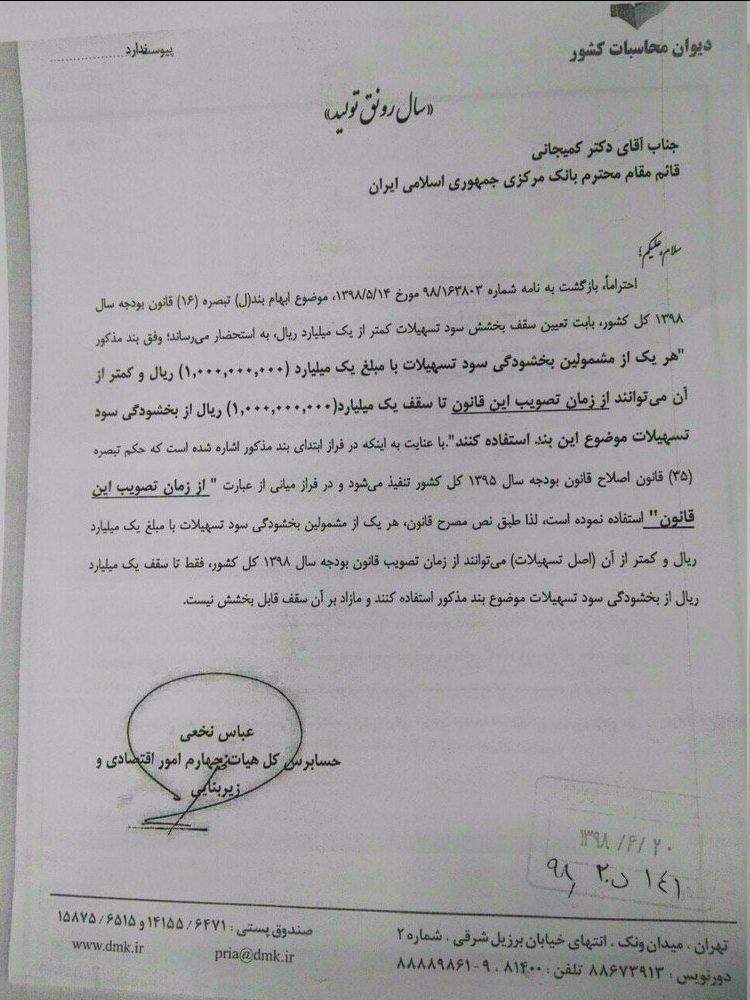 دیوان محاسبات کشور
پیوست ندارد
«سال رونق تولید»
جناب آقای دکتر کمیجانی
قائم مقام محترم بانک مرکزی جمهوری اسلامی ایران
سلام علیکم؛
احتراماً، بازگشت به نامه شماره ۹۸/۱۶۳۸۰۳ مورخ ۱۳۹۸/۵/۱۴، موضوع ابهام بند(ل) تبصره (۱۶) قانون بودجه سال
۱۳۹۸ کل کشور، بابت تعیین سقف بخشش سود تسهیلات کمتر از یک میلیارد ریال، به استحضار می‌رساند؛ وفق بند مذکور
"هر یک از مشمولین بخشودگی سود تسهیلات با مبلغ یک میلیارد (۱,۰۰۰,۰۰۰,۰۰۰) ریال و کمتر از
آن می‌توانند از زمان تصویب این قانون تا سقف یک میلیارد(۱,۰۰۰,۰۰۰,۰۰۰) ریال از بخشودگی سود
تسهیلات موضوع این بند استفاده کنند".با عنایت به اینکه در فراز ابتدای بند مذکور اشاره شده است که حکم تبصره
(۳۵) قانون اصلاح قانون بودجه سال ۱۳۹۵ کل کشور تنفیذ می‌شود و در فراز میانی از عبارت " از زمان تصویب این
قانون" استفاده نموده است، لذا طبق نص مصرح قانون، هر یک از مشمولین بخشودگی سود تسهیلات با مبلغ یک میلیارد
ریال و کمتر از آن (اصل تسهیلات) می‌توانند از زمان تصویب قانون بودجه سال ۱۳۹۸ کل کشور، فقط تا سقف یک میلیارد
ریال از بخشودگی سود تسهیلات موضوع بند مذکور استفاده کنند و مازاد بر آن سقف قابل بخشش نیست.
عباس نخعی
حسابرس کل هیات چهارم امور اقتصادی و
زیربنایی
۱۳۹۸/۶/۲۰
تهران ، میدان ونک ، انتهای خیابان برزیل شرقی ، شماره ۲
دورنویس : ۸۸۶۷۳۹۱۳ تلفن : ۸۱۴۰۰ ، ۹-۸۸۸۸۹۸۶۱
صندوق پستی : ۱۴۱۵۵/۶۴۷۱ و ۱۵۸۷۵/۶۵۱۵
www.dmk.ir pria@dmk.ir